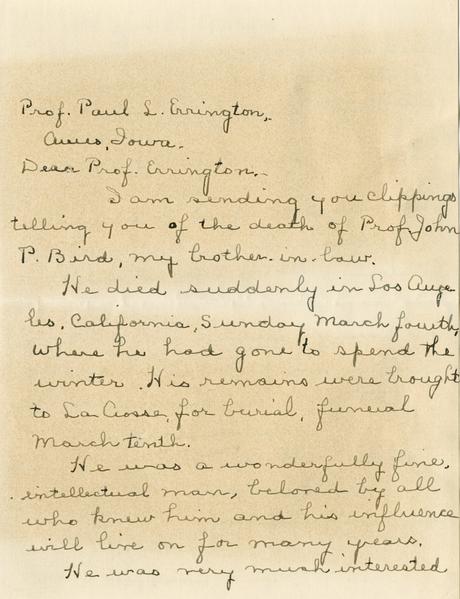 Prof. Paul L. Errington,
Ames, Iowa.
Dear Prof. Errington,-
I am sending you clippings
telling you of the death of Prof. John
P. Bird, my brother-in-law.
He died suddenly in Los Ange-
les, California, Sunday March fourth,
where he had gone to spend the
winter. His remains were brought
to La Crosse, for burial, funeral
March tenth.
He was a wonderfully fine,
intellectual man, beloved by all
who knew him and his influence
will live on for many years.
He was very much interested